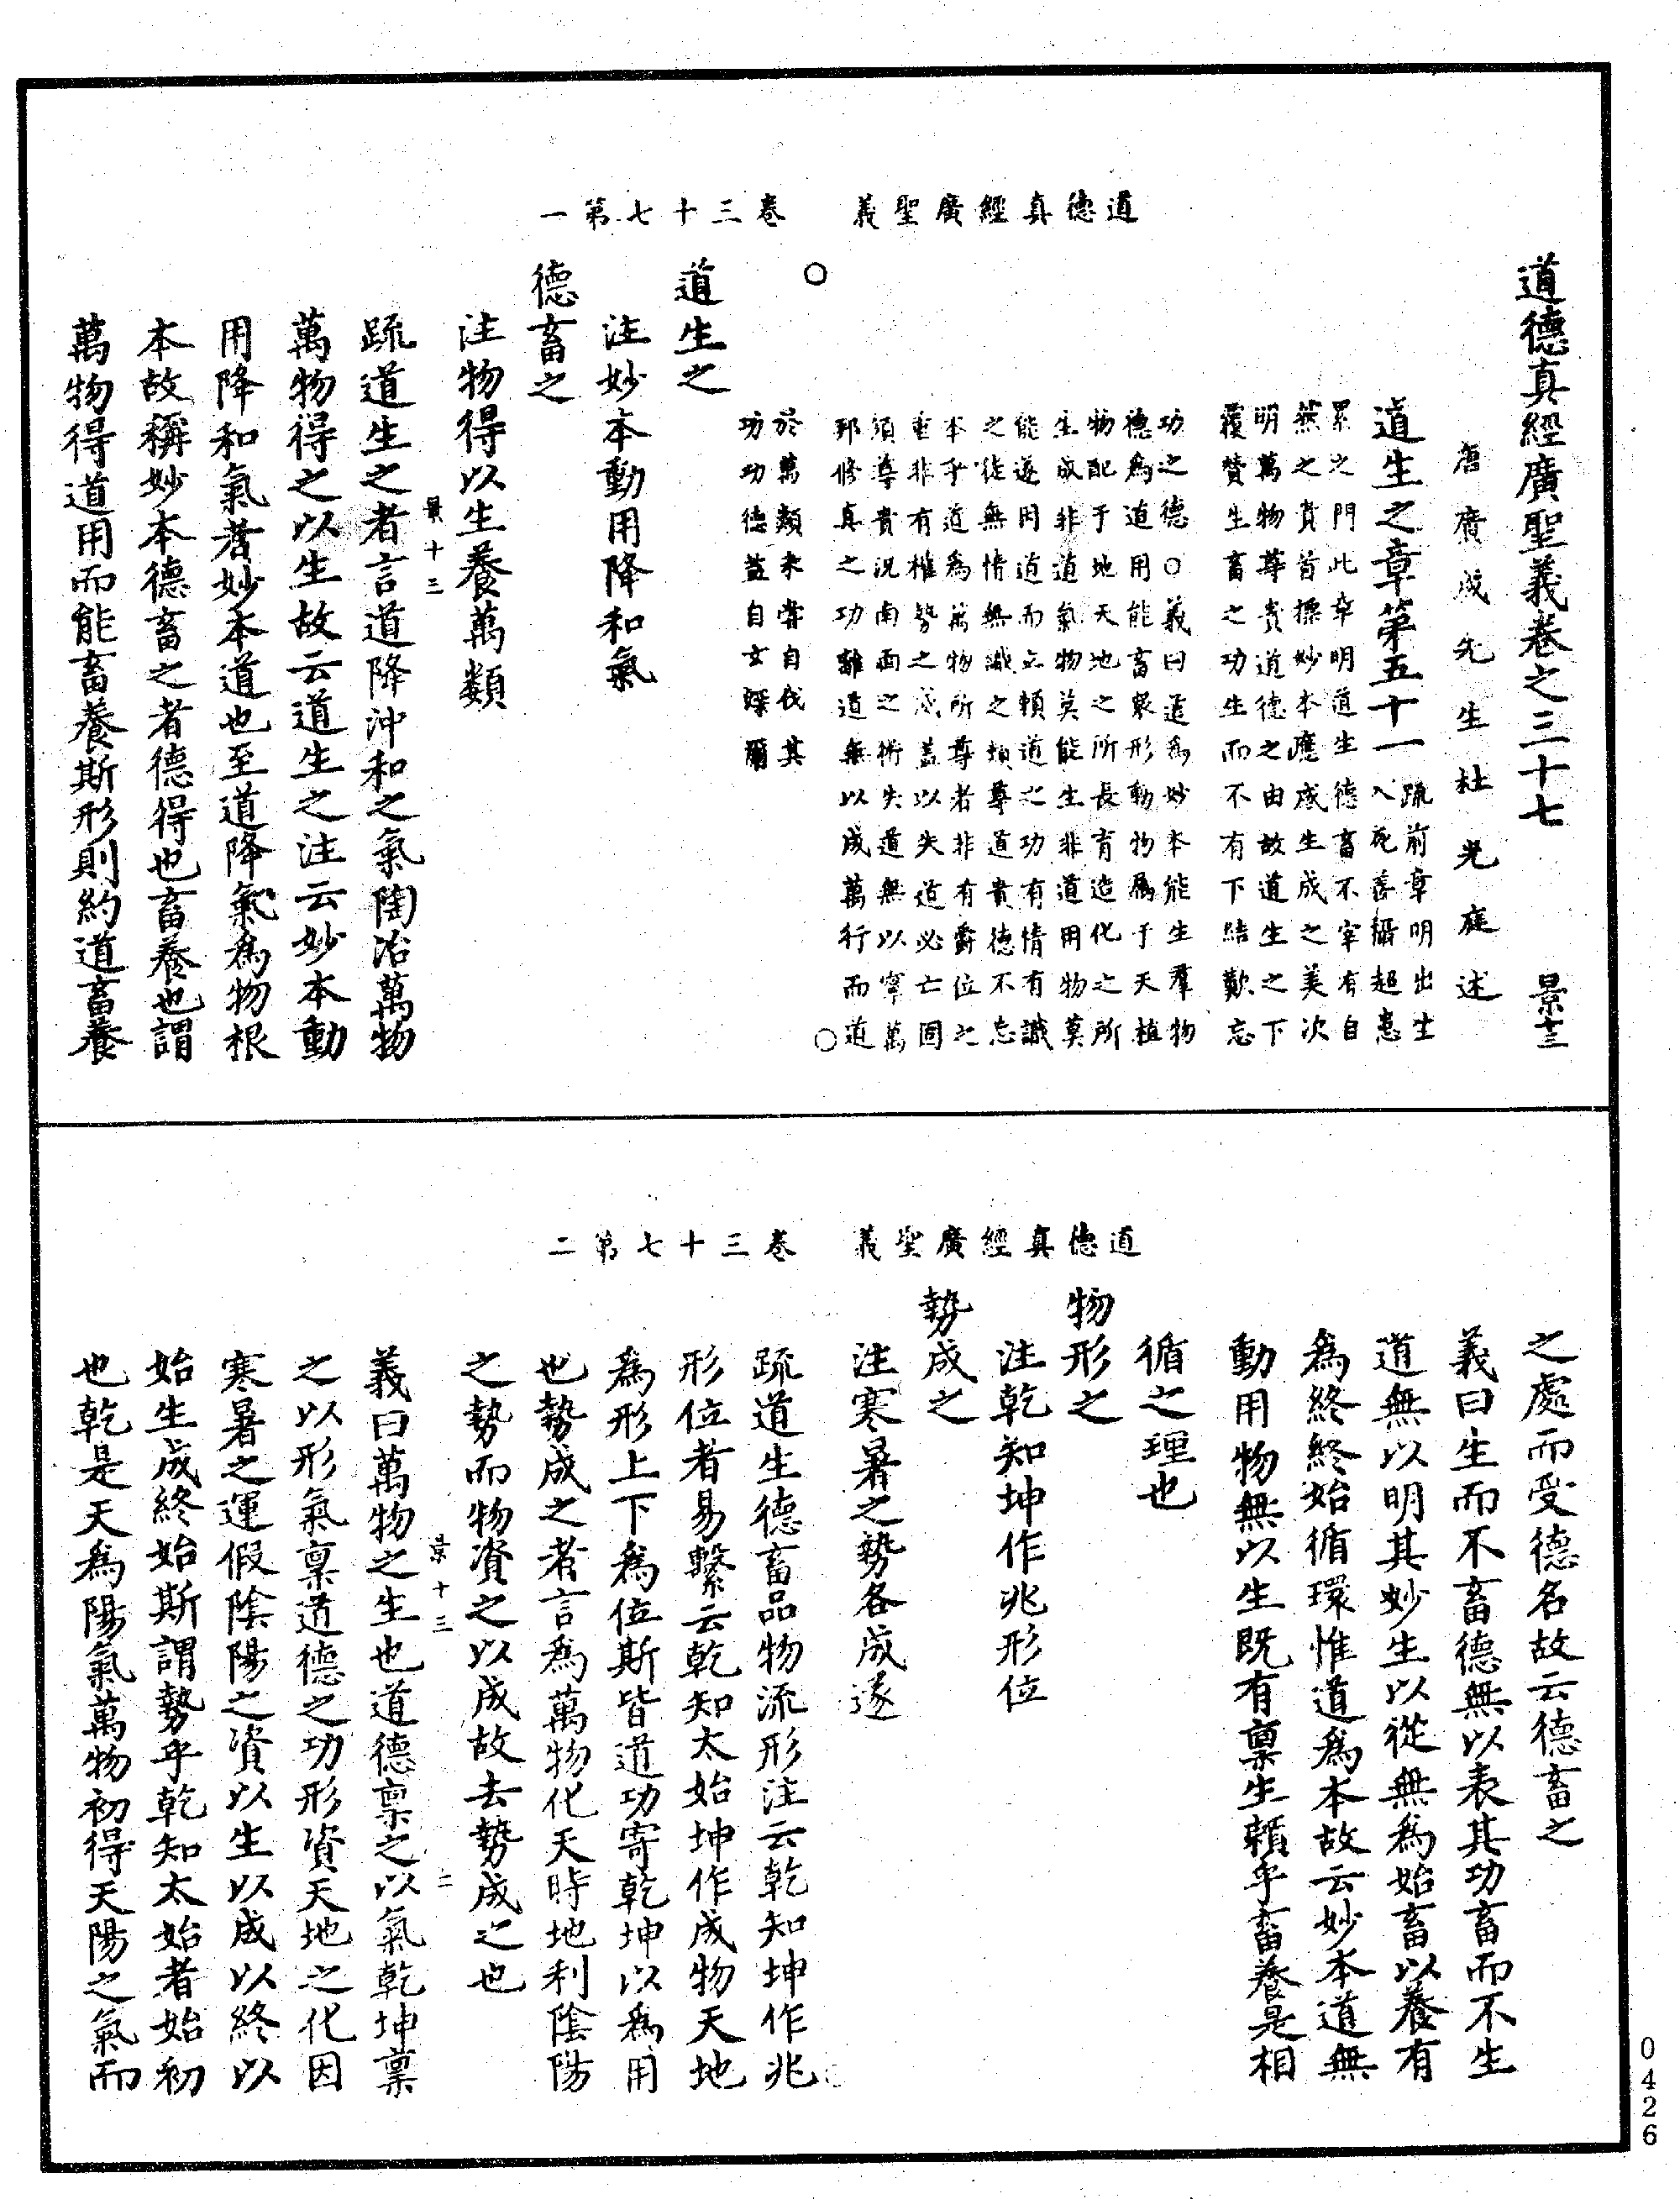 道德真經廣聖義　卷三十七第一
道德真經廣聖義卷之三十七　景十三
唐廣成先生杜光庭述
道生之章第五十一
疏前章明出生
入死善攝超患
累之門此章明道生德畜不宰有自
然之貴首標妙本應感生成之美次
明萬物尊貴道德之由故道生之下
覆贊生畜之功生而不有下結歎忘
功之德○義曰道為妙本能生羣物
德為道用能畜衆形動物屬于天植
物配于地天地之所長育造化之所
生成非道氣物莫能生非道用物莫
能遂因道而立賴道之功有情有識
之徒無情無識之類尊道貴德不忘
本乎道為萬物所尊者非有爵位之
重非有權勢之威蓋以失道必亡固
須尊貴況南面之術失道無以寧萬
邦修真之功離道無以成萬行而道
○
於萬類未嘗自伐其
功功德益自玄深爾
○
道生之
注妙本動用降和氣
德畜之
注物得以生養萬類
疏道生之者言道降沖和之氣陶冶萬物
景十三
萬物得之以生故云道生之注云妙本動
用降和氣者妙本道也至道降氣為物根
本故稱妙本德畜之者德得也畜養也謂
萬物得道用而能畜養斯形則約道畜養
道德真經廣聖義　卷三十七第二
之處而受德名故云德畜之
義曰生而不畜德無以表其功畜而不生
道無以明其妙生以從無為始畜以養有
為終終始循環惟道為本故云妙本道無
動用物無以生既有稟生賴乎畜養是相
循之理也
物形之
注乾知坤作兆形位
勢成之
注寒暑之勢各成遂
疏道生德畜品物流形注云乾知坤作兆
形位者易繫云乾知太始坤作成物天地
為形上下為位斯皆道功寄乾坤以為用
也勢成之者言為萬物化天時地利陰陽
之勢而物資之以成故去勢成之也
景十三　二
義曰萬物之生也道德稟之以氣乾坤稟
之以形氣稟道德之功形資天地之化因
寒暑之運假陰陽之資以生以成以終以
始生成終始斯謂勢乎乾知太始者始初
也乾是天為陽氣萬物初得天陽之氣而
0426